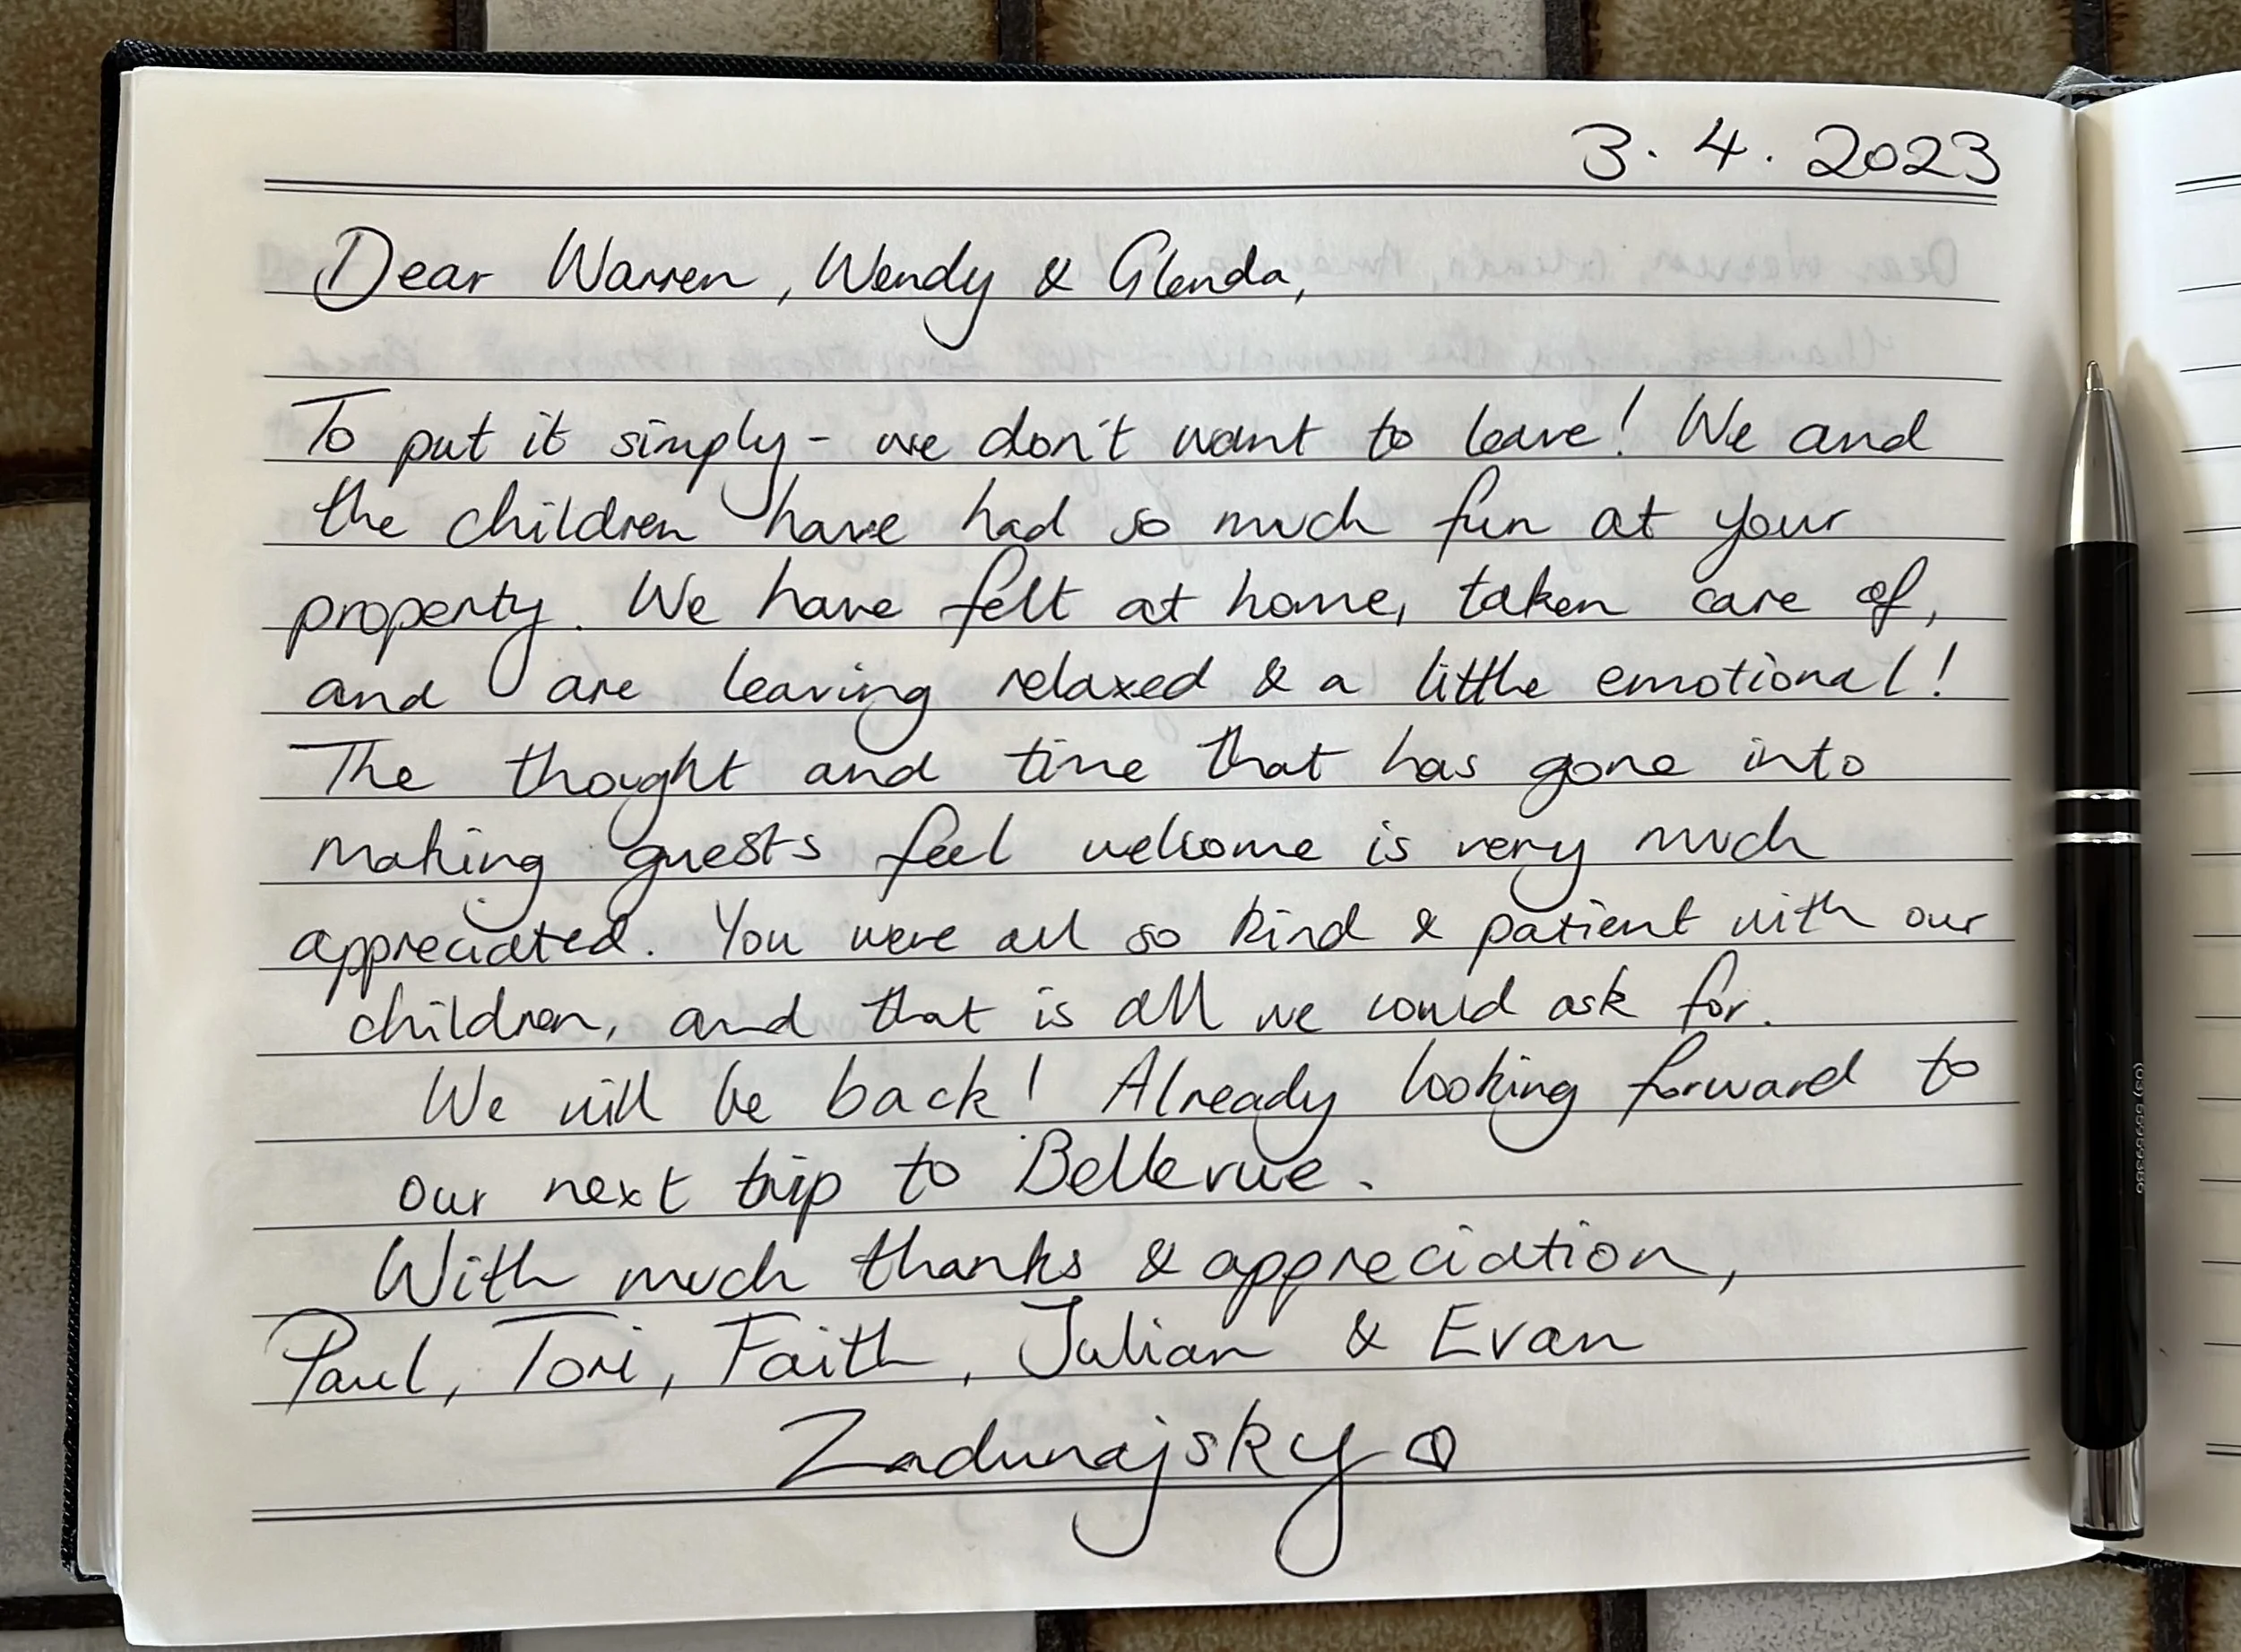 3. 4. 2023
Dear Warren, Wendy & Glenda,
To put it simply - we don't want to leave! We and
the children have had so much fun at your
property. We have felt at home, taken care of,
and are leaving relaxed & a little emotional!
The thought and time that has gone into
making guests feel welcome is very much
appreciated. You were all so kind & patient with our
children, and that is all we could ask for.
We will be back! Already looking forward to
our next trip to Bellevue.
With much thanks & appreciation,
Paul, Tori, Faith, Julian & Evan
Zadunajsky